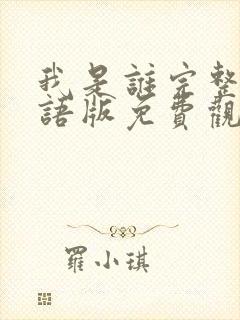 我是誰完整
語版免費觀
羅小琪